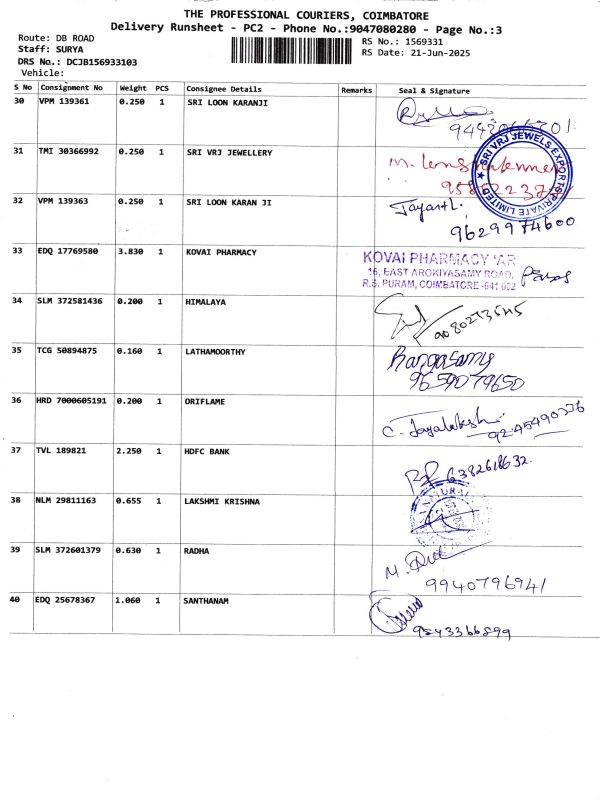 THE PROFESSIONAL COURIERS, COIMBATORE
Delivery Runsheet - PC2 - Phone No.:9047080280 - Page No.:3
Route: DB ROAD
Staff: SURYA
DRS No.: DCJB156933103
Vehicle:
RS No.: 1569331
RS Date: 21-Jun-2025
S No Consignment No Weight PCS Consignee Details Remarks Seal & Signature
30 VPM 139361 0.250 1 SRI LOON KARANJI
31 TMI 30366992 0.250 1 SRI VRJ JEWELLERY
SRI VRJ JEWELS EXPORTS PRIVATE LIMITED
32 VPM 139363 0.250 1 SRI LOON KARAN JI
Jayanth.
9629974600
33 EDQ 17769580 3.830 1 KOVAI PHARMACY
KOVAI PHARMACY
16, EAST AROKIYASAMY ROAD,
R.S. PURAM, COIMBATORE -641 002
34 SLM 372581436 0.200 1 HIMALAYA
35 TCG 50894875 0.160 1 LATHAMOORTHY
Rangasamy
9659079650
36 HRD 7000605191 0.200 1 ORIFLAME
C. Jayalakshmi
37 TVL 189821 2.250 1 HDFC BANK
6382618632.
38 NLM 29811163 0.655 1 LAKSHMI KRISHNA
39 SLM 372601379 0.630 1 RADHA
9940796941
40 EDQ 25678367 1.060 1 SANTHANAM
9843366899